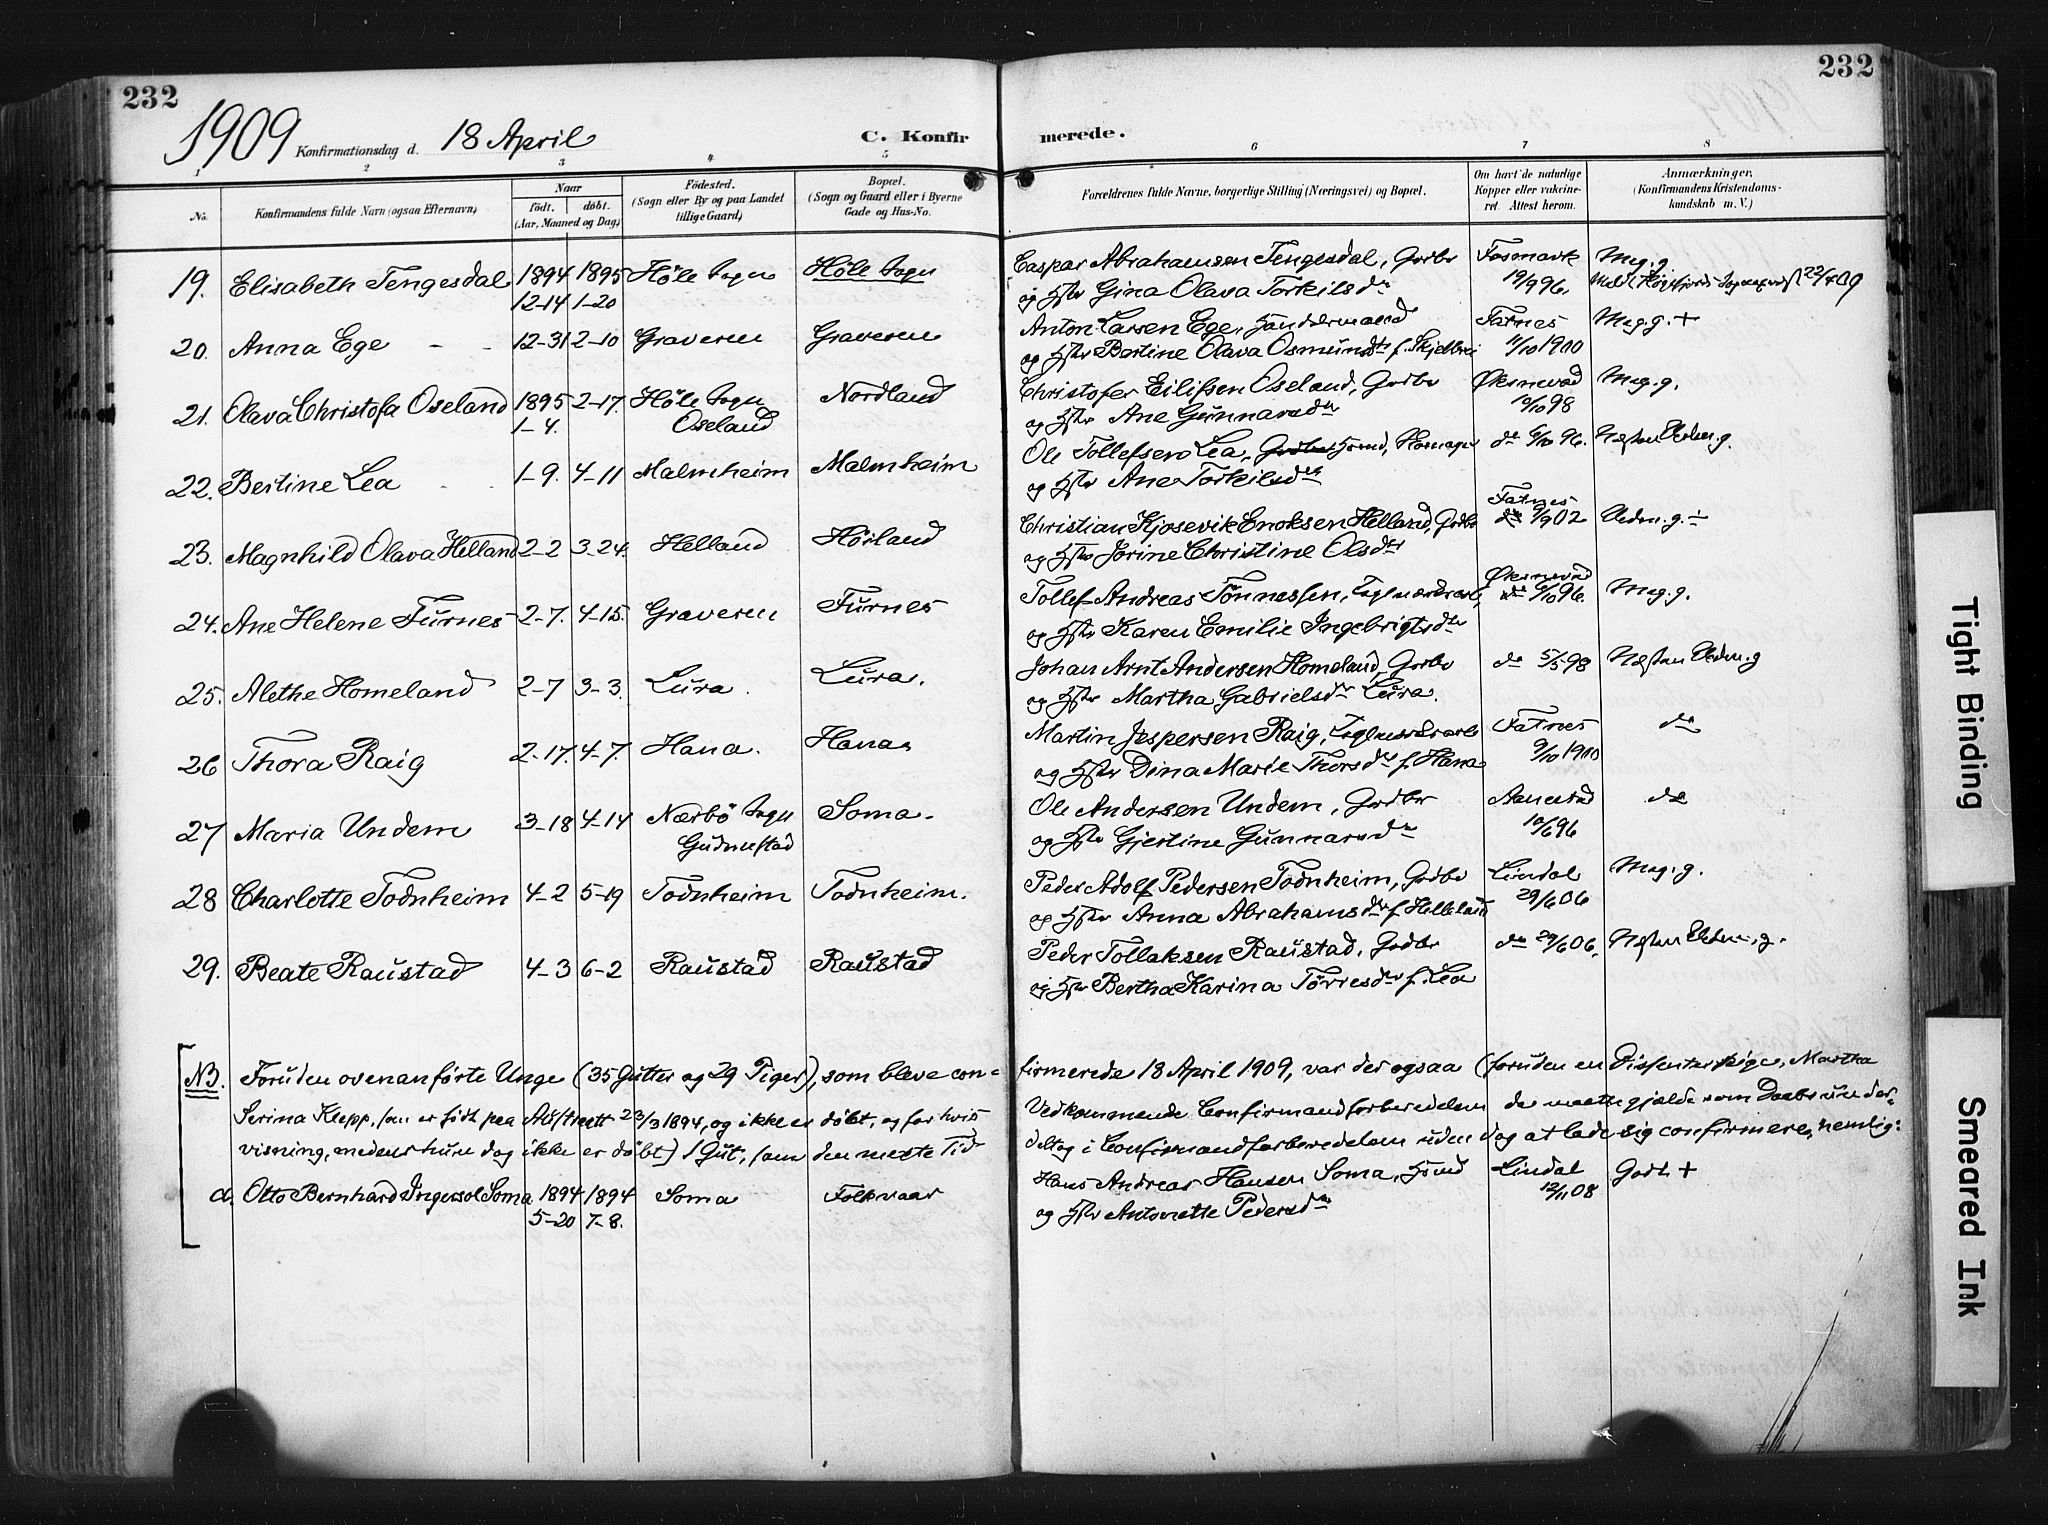 232
232
1909 Konfirmationsdag d. 18 April
C. Konfirmerede.
1 2 3 4 5 6 7 8
No.
Konfirmandens fulde Navn (ogsaa Efternavn)
Naar
født. døbt.
(Aar, Maaned og Dag)
Fødested.
(Sogn eller By og paa Landet
tillige Gaard)
Bopæl.
(Sogn og Gaard eller i Byerne
Gade og Hus-No.
Forældrenes fulde Navne, borgerlige Stilling (Næringsvei) og Bopæl.
Om havt de naturlige
Kopper eller vakcine-
ret. Attest herom.
Anmærkninger.
(Konfirmandens Kristendoms-
kundskab m. V.)
19. Elisabeth Tengesdal 1894 12-14 1895 1-20 Høle Sogn Høle Sogn Caspar Abrahamsen Tengesdal, Grdbr Fosmark 19/9 96. Meg. g.
og Hstr Gina Olava Torkilsdr
20. Anna Ege - - 12-31 2-10 Graveren Graveren Anton Larsen Ege, Fatnes 11/10 1900 Meg. g. +
og Hstr Bertine Olava Osmundsdtr f. Skjelbrei
21. Olava Christofa Oseland 1895 1-4. 2-17. Høle Sogn Oseland Nordland Christofer Eilifsen Oseland, Grdbr Øksnevad 10/10 98 Meg. g.
og Hstr Ane Gunnarsdtr
22. Bertine Lea - - 1-9. 4-11 Malmheim Malmheim Ole Tollefsen Lea, do 6/10 96. Næsten Udm. g.
og Hstr Ane Torkilsdtr
23. Magnhild Olava Helland 2-2 3-24. Helland Hørland Christian Kjosevik Enoksen Helland, Grdbr Fatnes 9/9 02 Udm. g. ÷
og Hstr Jorine Christine Olsdtr
24. Ane Helene Furnes 2-7. 4-15. Graveren Furnes Tollef Andreas Tønnessen, Øksnevad 6/10 96. Meg. g.
og Hstr Karen Emilie Ingebrigtsdtr
25. Alethe Homeland 2-7 3-3. Lura. Lura. Johan Arnt Andersen Homeland, Grdbr do 5/5 98 Næsten Udm. g
og Hstr Martha Gabrielsdr Lura.
26 Thora Raig 2-17. 4-7. Hana. Hana. Martin Jespersen Raig, Fatnes 9/10 1900 do
og Hstr Dina Marie Thorsdtr f. Hana
27 Maria Undem 3-18 4-14 Nærbø Sogn Gudmestad Soma. Ole Andersen Undem, Grdbr Aanestad 10/6 96 do
og Hstr Gjertine Gunnarsdr
28 Charlotte Todnheim 4-2 5-19 Todnheim Todnheim. Peder Adolf Pedersen Todnheim, Grdbr Lindal 29/6 06 Meg. g.
og Hstr Anna Abrahamsdtr f. Helleland
29. Beate Raustad 4-3 6-2 Raustad Raustad Peder Tollaksen Raustad, Grdbr do 29/6 06. Næsten Udm. g.
og Hstr Bertha Karina Tørresdtr f. Lea
NB. Foruden ovenanførte Unge (35 Gutter og 29 Piger), som bleve confirmerede 18 April 1909, var der ogsaa (foruden en Dissenterpige, Martha
Serina Klepp, som er født paa 23/3 1894, og ikke er døbt, og for hvis Vedkommende Confirmandforberedelsen da maatte gjælde som Daabsunder-
visning, medens hun dog ikke er døbt) 1 Gut, som den meste Tid deltog i Confirmandforberedelsen uden dog at lade sig confirmere, nemlig:
d. Otto Bernhard Ingersol Soma 1894 5-20 1894 7-8. Soma Folkvaar Hans Andreas Hansen Soma, Lindal 12/11 08 Godt +
og Hstr Antonette Pedersdtr
Tight Binding
Smeared Ink